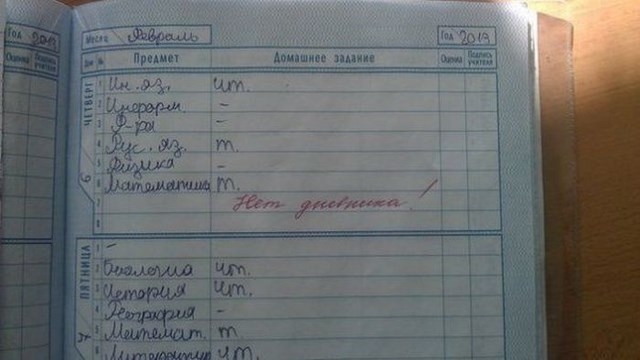 Год 2019
Оценка Подпись учителя
Месяц Февраль Год 2019
Дни № Предмет Домашнее задание Оценка Подпись учителя
ЧЕТВЕРГ
1 Ин. яз. чт.
2 Информ. -
3 Ф-ра -
4 Рус. яз. т.
5 Физика -
6 Математика т.
7 Нет дневника!
8
ПЯТНИЦА
1 -
2 Биология чт.
3 История чт.
4 География -
5 Математ. т
6 Литература чт.